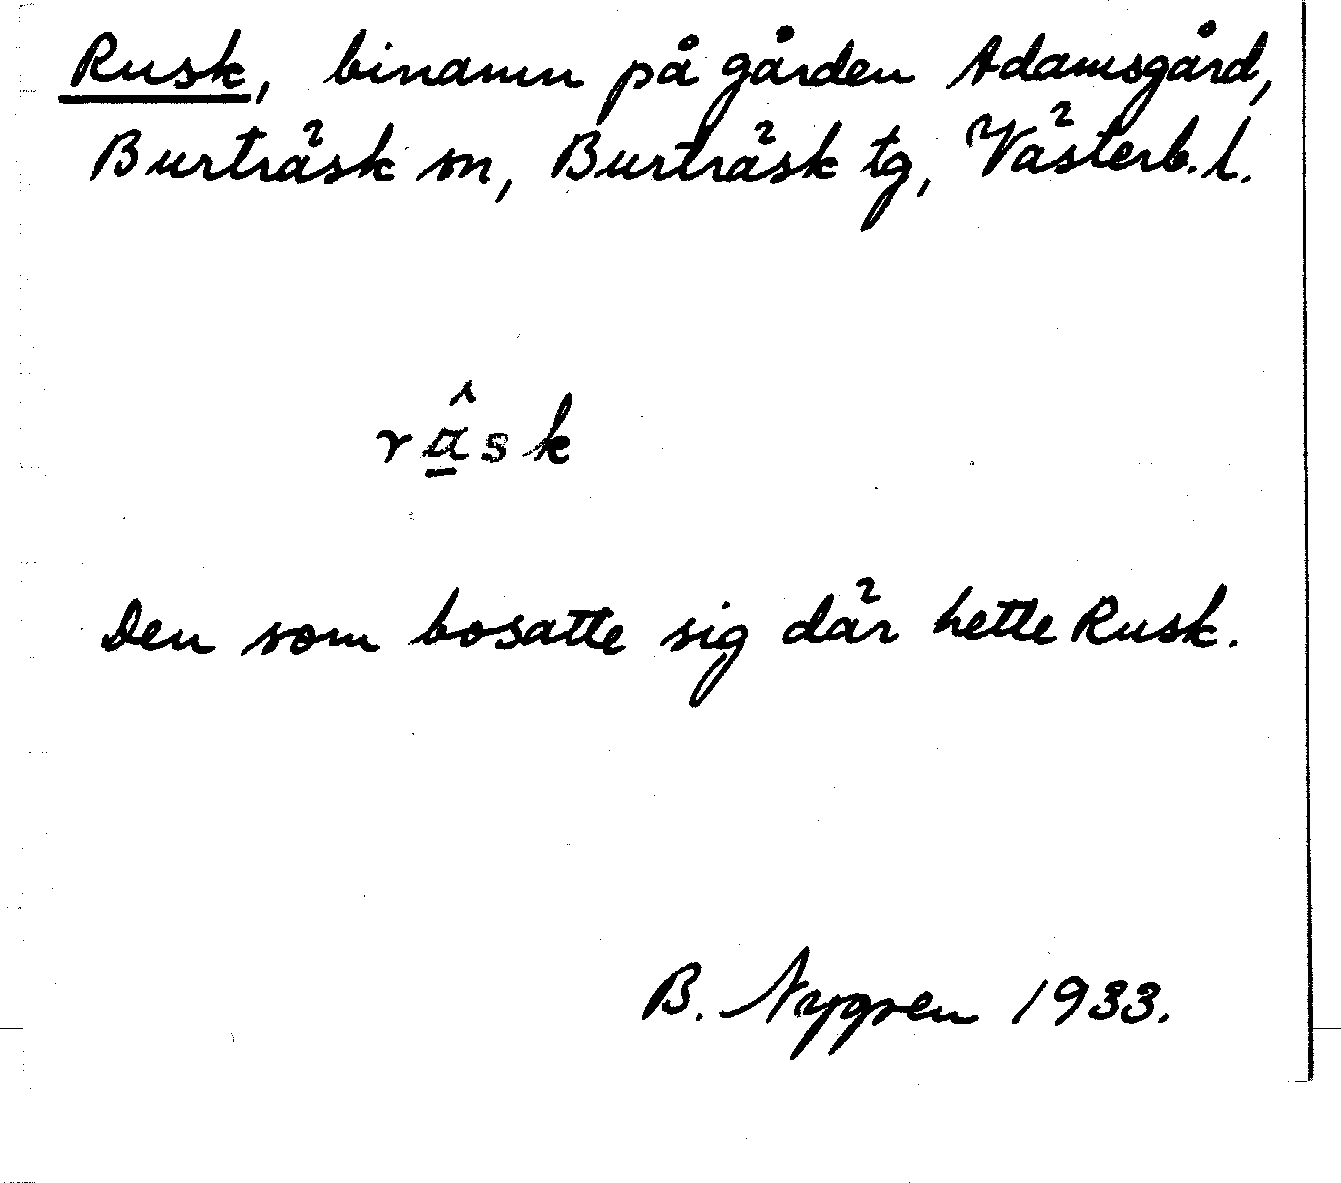 Rusk, binamn på gården Adamsgård,
Burträsk sn, Burträsk tg, Västerb. l.
râ̱sk
Den som bosatte sig där hette Rusk.
B. Nygren 1933.